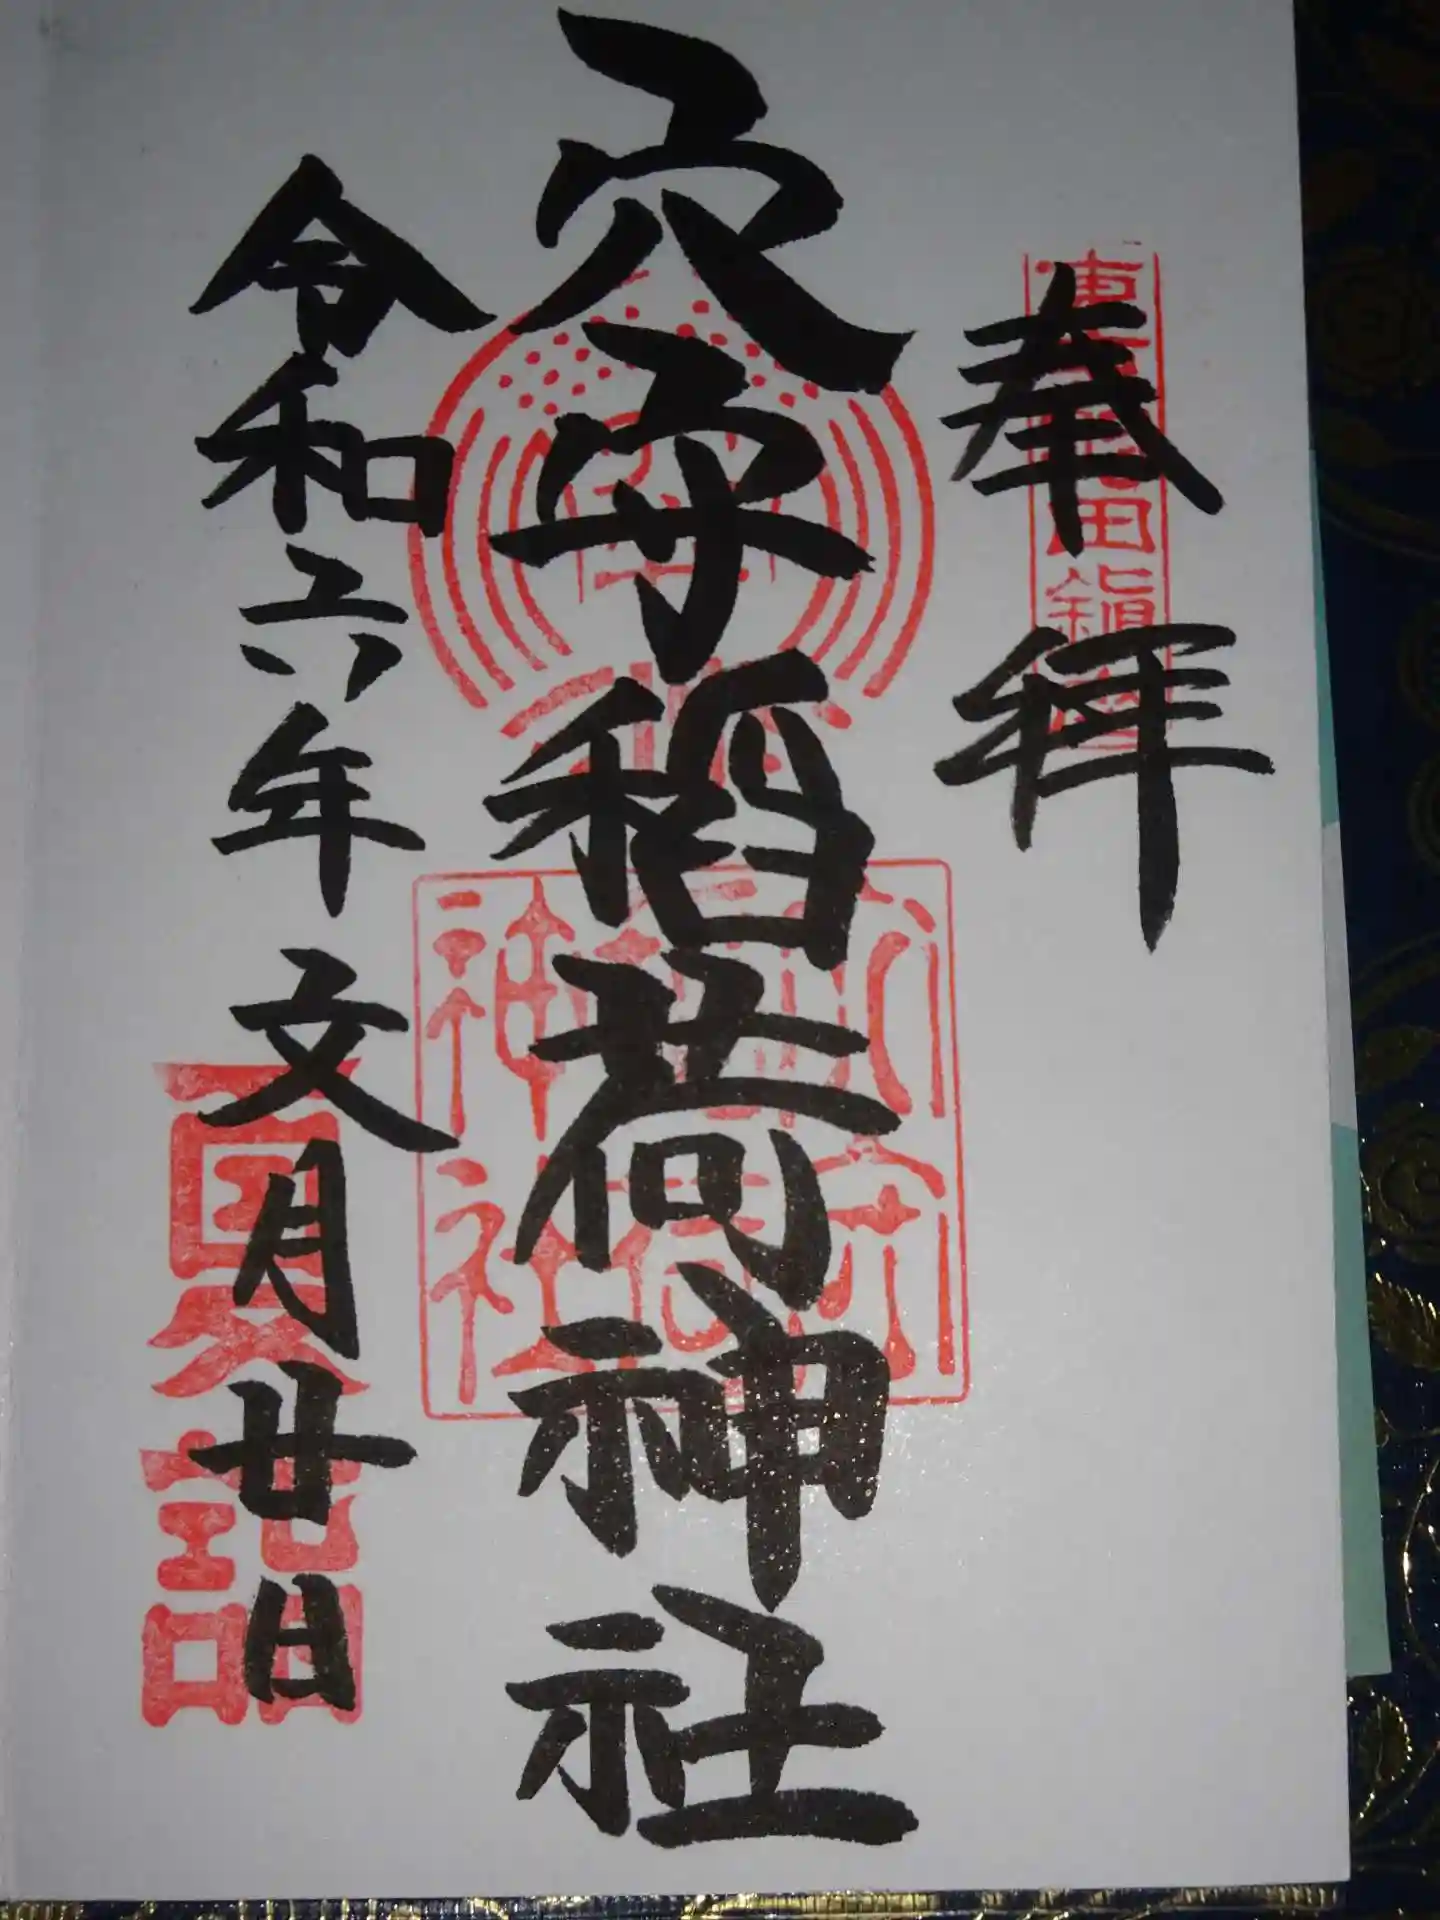 奉拝
東京羽田鎮座
穴守稲荷神社
穴守
稲荷
神社
令和六年文月廿日
夏詣